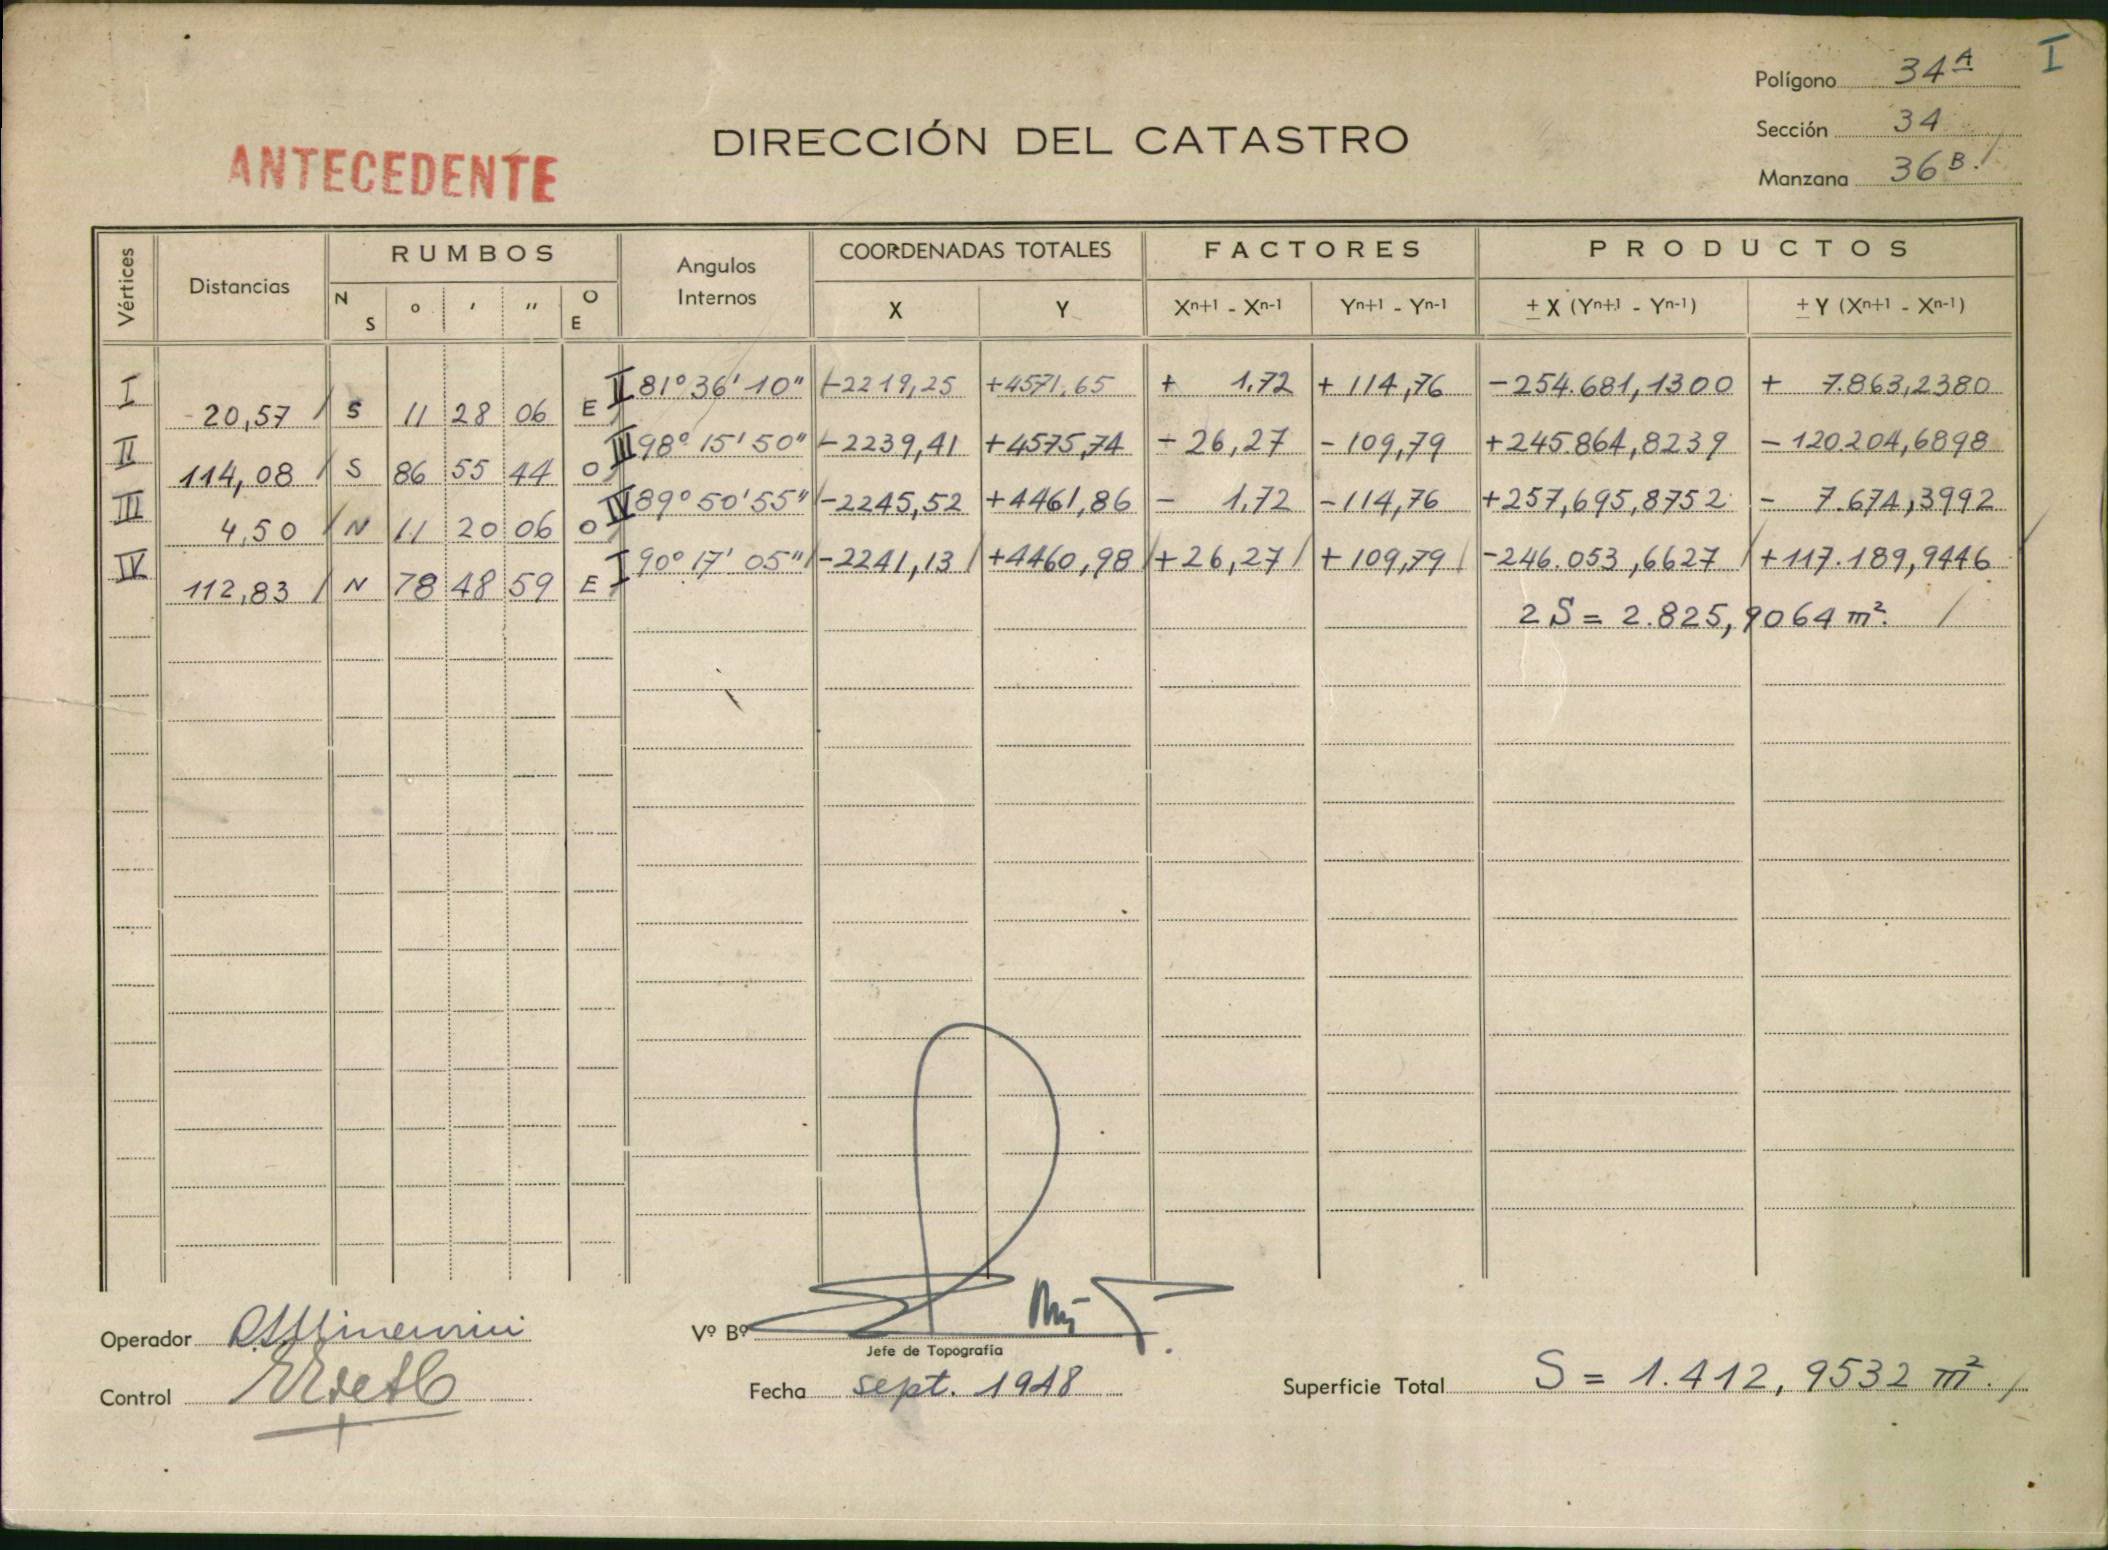 I
Polígono 34A
Sección 34
Manzana 36B.
DIRECCIÓN DEL CATASTRO
ANTECEDENTE
Vértices Distancias RUMBOS Angulos Internos COORDENADAS TOTALES FACTORES PRODUCTOS
N S ° ' " O E X Y Xn+1 - Xn-1 Yn+1 - Yn-1 ± X (Yn+1 - Yn-1) ± Y (Xn+1 - Xn-1)
I 20,57 S 11 28 06 E II 81° 36' 10" -2219,25 +4571,65 + 1,72 + 114,76 -254.681,1300 + 7.863,2380
II 114,08 S 86 55 44 O III 98° 15' 50" -2239,41 +4575,74 - 26,27 - 109,79 +245.864,8239 - 120.204,6898
III 4,50 N 11 20 06 O IV 89° 50' 55" -2245,52 +4461,86 - 1,72 -114,76 +257,695,8752 - 7.674,3992
IV 112,83 N 78 48 59 E I 90° 17' 05" -2241,13 +4460,98 +26,27 + 109,79 -246.053,6627 +117.189,9446
2S = 2.825,9064 m².
Operador
Vº Bº
Jefe de Topografía
Control
Fecha sept. 1948
Superficie Total S = 1.412,9532 m².